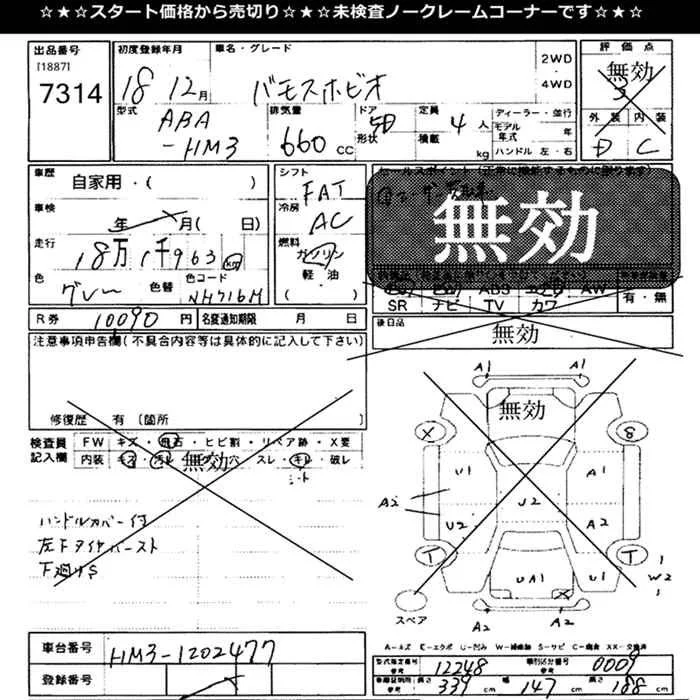 ☆★☆スタート価格から売切り☆★☆未検査ノークレームコーナーです☆★☆
出品番号 初度登録年月 車名・グレード 評価点
[1887]
7314 18 12月 バモスホビオ 2WD 4WD 無効
型式 排気量 ドア 形状 定員 積載 ディーラー・並行 外装 内装
ABA-HM3 660CC 5D 4人 kg モデル年式 年 ハンドル 左・右 D C
車歴 自家用・( ) シフト FAT セールスポイント
車検 年 月( 日) 冷房 AC 無効
走行 18万1千963km 燃料 ガソリン 軽・油 ( )
色 グレー 色替 色コード NH716M
SR ナビ TV カワ 有・無
R券 10090円 名変通知期限 月 日 後日品 無効
注意事項申告欄(不具合内容等は具体的に記入して下さい)
修復歴 有 〔箇所 〕
検査員記入欄 FW キズ・飛石・ヒビ割・リペア跡・X要
内装 キズ・汚レ・穴・スレ・キレ・破レ
無効
シート
ハンドルカバー付
左下タイヤバースト
下廻りS
A1 A1
無効
X 8
U1 A1
A2 U2
U2 A2
T T
UA1 X U1 W2
スペア A2 A2
車台番号 HM3-1202477
登録番号
A-キズ E-エクボ U-凹み W-補修跡 S-サビ C-腐食 XX-交換済
型式指定番号 参考 12248 類別区分番号 参考 0009
長さ 339cm 幅 147cm 高さ 188cm